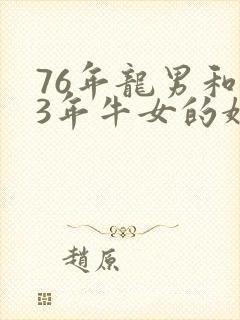 76年龍男和
3年牛女的
趙原